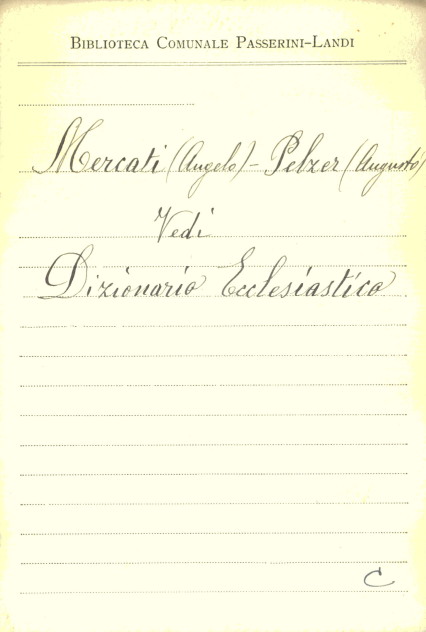 Biblioteca Comunale Passerini-Landi
Mercati (Angelo) - Pelzer (Augusto)
Vedi
Dizionario Ecclesiastico
C